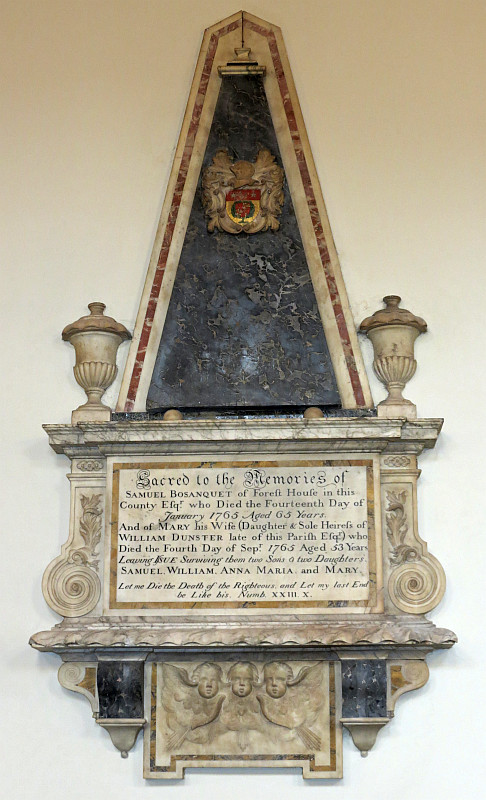 Sacred to the Memories of
SAMUEL BOSANQUET of Foreſt House in this
County Eſqr. who Died the Fourteenth Day of
January 1765 Aged 65 Years.
And of MARY his Wife (Daughter & Sole Heireſs of,
WILLIAM DUNSTER late of this Pariſh Eſqr.) who
Died the Fourth Day of Sepr. 1765 Aged 53 Years
Leaving ISSUE Surviving them two Sons & two Daughters.
SAMUEL, WILLIAM, ANNA MARIA, and MARY,
Let me Die the Death of the Righteous, and Let my last End
be Like his. Numb. XXIII. X.